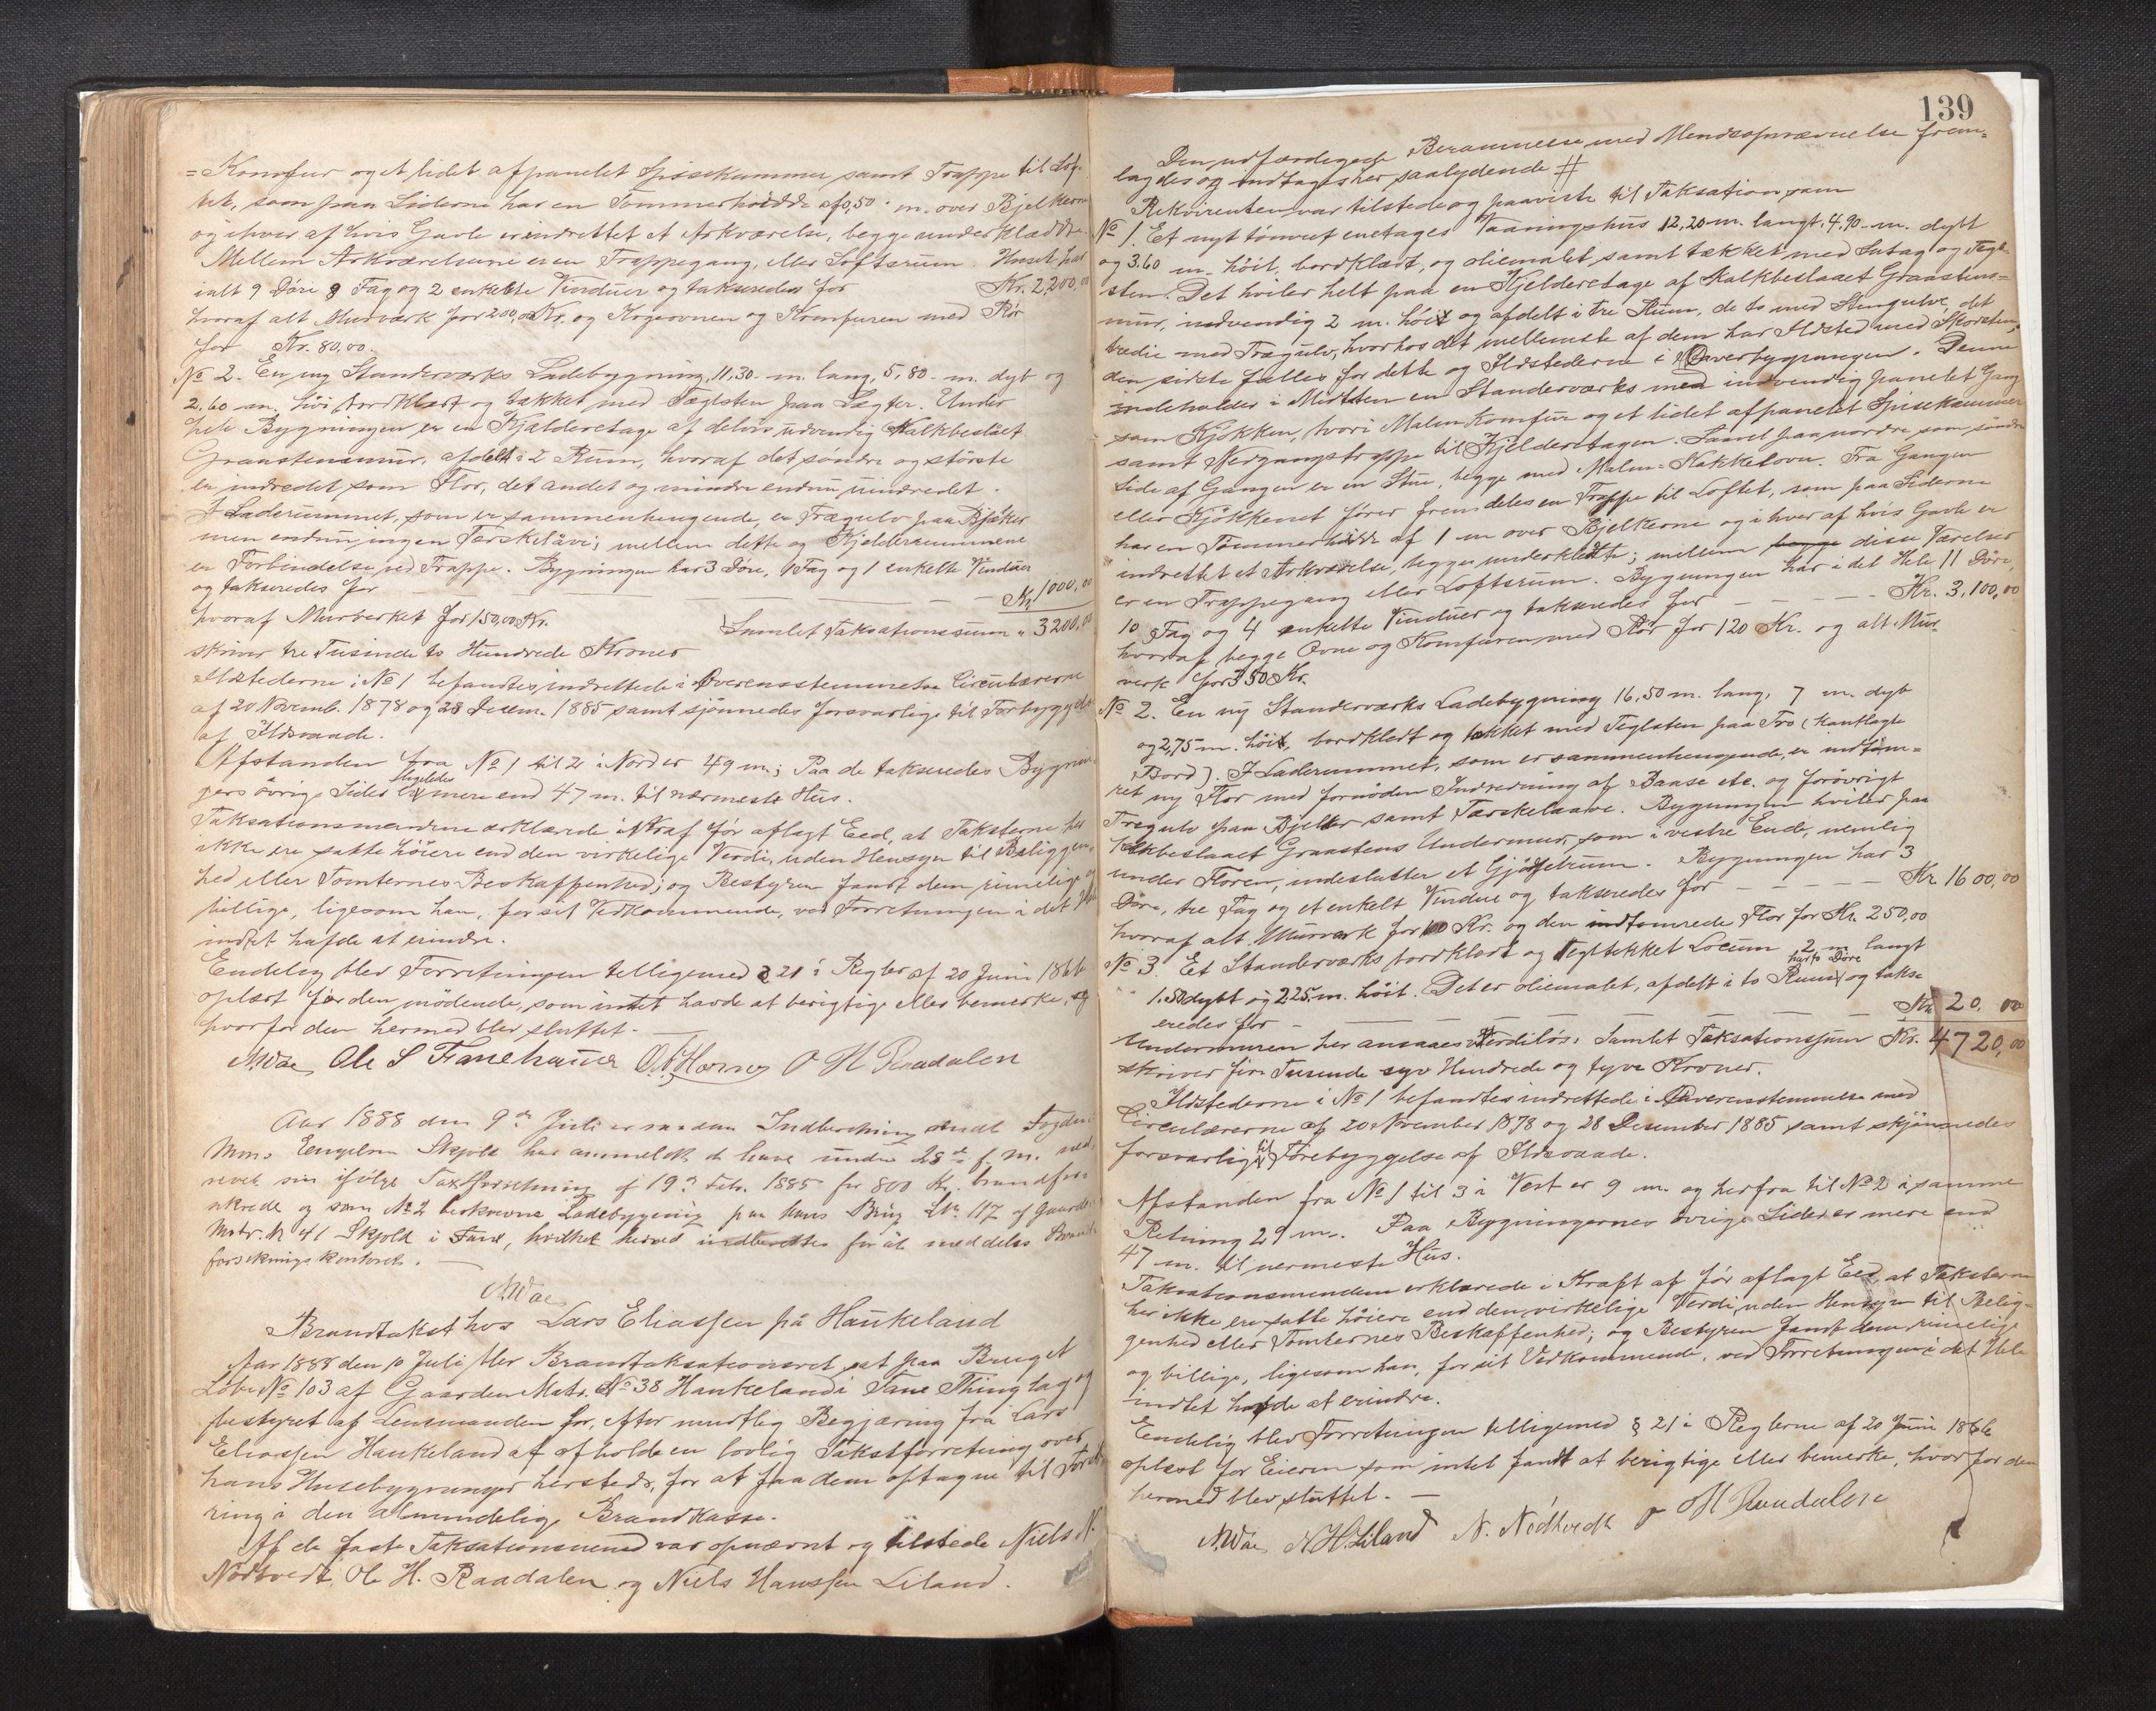 =Komfur og et lidet afpanelet Spisekammer samt Trappe til Lof-
tet, som paa Siderne har en Tømmerhøidde af 0,50 m. over Bjelkerne
og i hver af hvis Gavle er indrettet et Arkværelse, begge underklædte.
Mellem Arkværelserne er en Trappegang, eller Loftsrum. Huset har
ialt 9 Døre 8 Fag og 2 enkelte Vinduer og takseredes for Kr. 2,200,00
hvoraf alt Murværk for 200,00 Kr. og Kogeovnen og Komfuren med Rør
for Kr. 80,00.
No 2. En ny Standerværks Ladebygning, 11,30 m. lang, 5,80 m. dyb og
2,60 m. høi, bordklædt og tækket med Teglsten paa Lægter. Under
hele Bygningen er en Kjælderetage af delvis udvendig Kalkbeslaaet
Graastensmur, afdelt i 2 Rum, hvoraf det søndre og største
er indredet som Flor, det andet og mindre endnu uindredet.
I Laderummet, som er sammenhengende, er Trægulv paa Bjelker
men endnu ingen Tærskelåve; mellem dette og Kjelderrummene
er Forbindelse ved Trappe. Bygningen har 3 Døre, 1 Fag og 1 enkelte Vinduer
og takseredes for Kr. 1000,00
hvoraf Murverket for 150,00 Kr.
Samlet Taksationssum " 3200,00
skriver tre Tusinde to Hundrede Kroner
Ildstederne i No 1 befandtes indrettede i Overensstemmelse Circulærerne
af 20 Novemb. 1878 og 28 Decem. 1885 samt sjønnedes forsvarlige til Forbyggelse
af Ildsvaade.
Afstanden fra No 1 til 2 i Nord er 49 m; Paa de takseredes Bygnin-
gers øvrige Sider er mere end 47 m. til nærmeste Hus.
Taksationsmændene erklærede i Kraf før aflagt Eed, at Taksterne her
ikke ere satte høiere end den virkelige Verdi, uden Hensyn til Beliggen-
hed eller Tomternes Beskaffenhed; og Bestyren fandt dem rimelige og
billige, ligesom han, for sit Vedkommende, ved Forretningen i det Hele
indtet hafde at erindre.
Endelig blev Forretningen tilligemed § 21 i Regler af 20 Juni 1866
oplæst for den mødende, som intet havde at berigtige eller bemerke, og
hvorfor den hermed blev sluttet.
Ole S Fanehauer O H Raadalen
Aar 1888 den 9de Juli er saadan Indberetning sendt Fogden:
Mons Lengelsen Skjold har anmeldt at have under 28de f. M. ned-
revet sin ifølge Taxtforretning af 19de Feb. 1885 for 800 Kr. brandfor-
sikrede og som No 2 beskrevne Ladebygning paa hans Brug Lbr 117 af Gaarden
Matr. N 41 Skjold i Fane, hvilket herved indberettes for at meddeles Brand-
forsikringskontoret.
Brandtakst hos Lars Eliassen på Haukeland
Aar 1888 den 10 Juli blev Brandtaksationsret sat paa Bruget
Løbe No 103 af Gaarden Matr. No 38 Haukeland i Fane Thinglag og
bestyret af Lensmanden for, efter mundtlig Begjæring fra Lars
Eliassen Haukeland at afholde en lovlig Takstforretning over
hans Husebygninger hersteds, for at faa dem optagne til Forsik-
ring i den almindelige Brandkasse.
Af de faste Taksationsmænd var opnævnt og tilstede Niels N.
Nødtvedt, Ole H. Raadalen og Niels Hanssen Liland.
139
Den udfærdigede Berammelse med Mendsopnævnelse frem=
lagdes og indtages her saalydende #
Rekvirenten var tilstede og paaviste til Taksation som
No 1. Et nyt tømret enetages Vaaningshus 12,20 m. langt, 4,90 m. dybt
og 3,60 m. høit, bordklædt, og oliemalet samt tækket med Sutag og Tegl-
sten. Det hviler helt paa en Kjelderetage af Kalkbeslaaet Graastens-
mur, indvendig 2 m. høit og afdelt i tre Rum, de to med Stengulve, det
tredie med Trægulv, hvorhos det mellemste af dem har Ildsted med Skorsten,
den sidste fælles for dette og Ildstederne i Overbygningen. Denne
indeholder i Midten en Standerværks med indvendig panelet Gang
som Kjøkken, hvori Malm Komfur og et lidet afpanelet Spisekammer
samt Nedgangstrappe til Kjelderetagen. Saavel paa nordre som søndre
Side af Gangen er en Stue, begge med Malm=Kakkelovn. Fra Gangen
eller Kjøkkenet fører fremdeles en Trappe til Loftet, som paa Siderne
har en Tømmerhøidde af 1 m over Bjelkerne og i hver af hvis Gavle er
indrettet et Arkværelse, begge underklædte; mellem disse Værelser
er en Trappegang eller Loftsrum. Bygningen har i det Hele 11 Døre,
10 Fag og 4 enkelte Vinduer og takseredes for Kr. 3,100,00
hvoraf begge Ovne og Komfuren med Rør for 120 Kr. og alt Mur-
verk for 350 Kr.
No 2. En ny Standerværks Ladebygning 16,50 m. lang, 7 m. dyb
og 2,75 m. høit, bordklædt og tækket med Teglsten paa Tro (kantlagte
Bord). I Laderummet, som er sammenhengende, er indtøm=
ret ny Flor med fornøden Indredning af Baase etc. og forøvrigt
Tregulv paa Bjelker samt Tærskelaave. Bygningen hviler paa
kalkbeslaaet Graastens Undermur, som i vestre Ende, nemlig
under Floren, indeslutter et Gjødselrum. Bygningen har 3
Døre, tre Fag og et enkelt Vindue og takseredes for Kr. 1600,00
hvoraf alt Murverk for 100 Kr. og den indtømrede Flor for Kr. 250,00
No 3. Et Standerværks bordklædt og tegltækket Locum 2 m langt
1,50 dybt og 2,25 m. høit. Det er oliemalet, afdelt i to Rum har to Døre og takse
eredes for Kr. 20,00
Undermuren her ansaaes Verdiløs. Samlet Taksationssum Kr. 4720,00
skriver fire Tusende syv Hundrede og tyve Kroner.
Ildstederne i No 1 befandtes indrettede i Overensstemmelse med
Circulærerne af 20 November 1878 og 28 December 1885 samt skjønnedes
forsvarlige til Forebyggelse af Ildsvaade.
Afstanden fra No 1 til 3 i Vest er 9 m. og herfra til No 2 i samme
Retning 29 m. Paa Bygningernes øvrige Sider er mere end
47 m. til nermeste Hus.
Taksationsmendene erklærede i Kraft af før aflagt Eed, at Taksterne
her ikke ere satte høiere end den virkelige Verdi, uden Hensyn til Belig-
genhed eller Tomternes Beskaffenhed; og Bestyren fandt dem rimelige
og billige, ligesom han, for sit Vedkommende, ved Forretningen i det Hele
indtet hafde at erindre.
Endelig blev Forretningen tilligemed § 21 i Reglerne af 20 Juni 1866
oplæst for Eieren som intet fandt at berigtige eller bemerke, hvorfor den
hermed blev sluttet.
N H. Liland N. Nødtvedt O H Raadalen